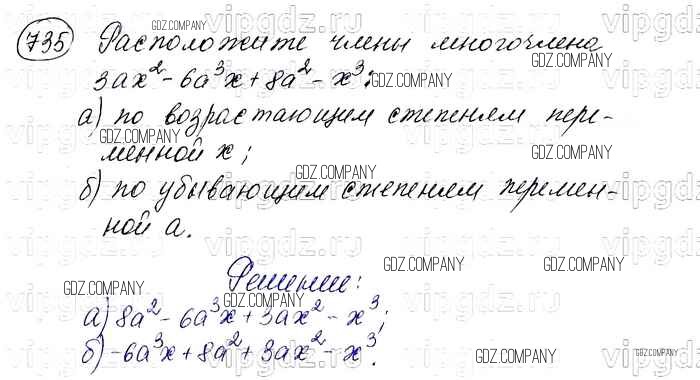 735 Расположите члены многочлена
3ax² - 6a³x + 8a² - x³:
а) по возрастающим степеням пере-
менной x;
б) по убывающим степеням перемен-
ной a.
Решение:
а) 8a² - 6a³x + 3ax² - x³;
б) -6a³x + 8a² + 3ax² - x³.
vipgdz.ru
GDZ.COMPANY